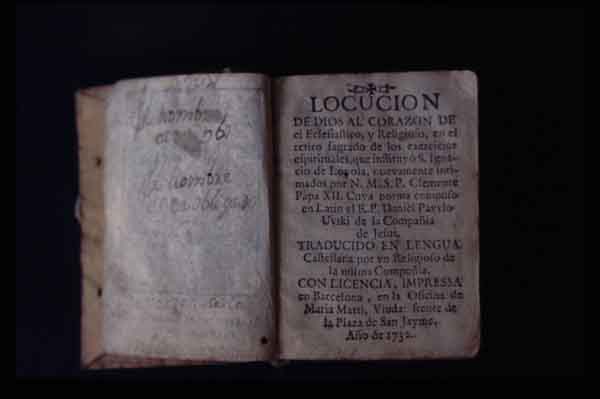 El hombre
El hombre
LOCUCION
DE DIOS AL CORAZON DE
el Eclesiastico, y Religioso, en el
retiro sagrado de los exercicios
espirituales, que instituyò S. Igna-
cio de Loyola, nuevamente inti-
mados por N. M. S. P. Clemente
Papa XII. Cuya norma compuso
en Latin el R. P. Daniel Pawlo-
Uvski de la Compañia
de Jesus.
TRADUCIDO EN LENGUA
Castellana por vn Religioso de
la misma Compañia.
CON LICENCIA, IMPRESSA
en Barcelona, en la Oficina de
Maria Marti, Viuda: frente de
la Plaza de San Jayme,
Año de